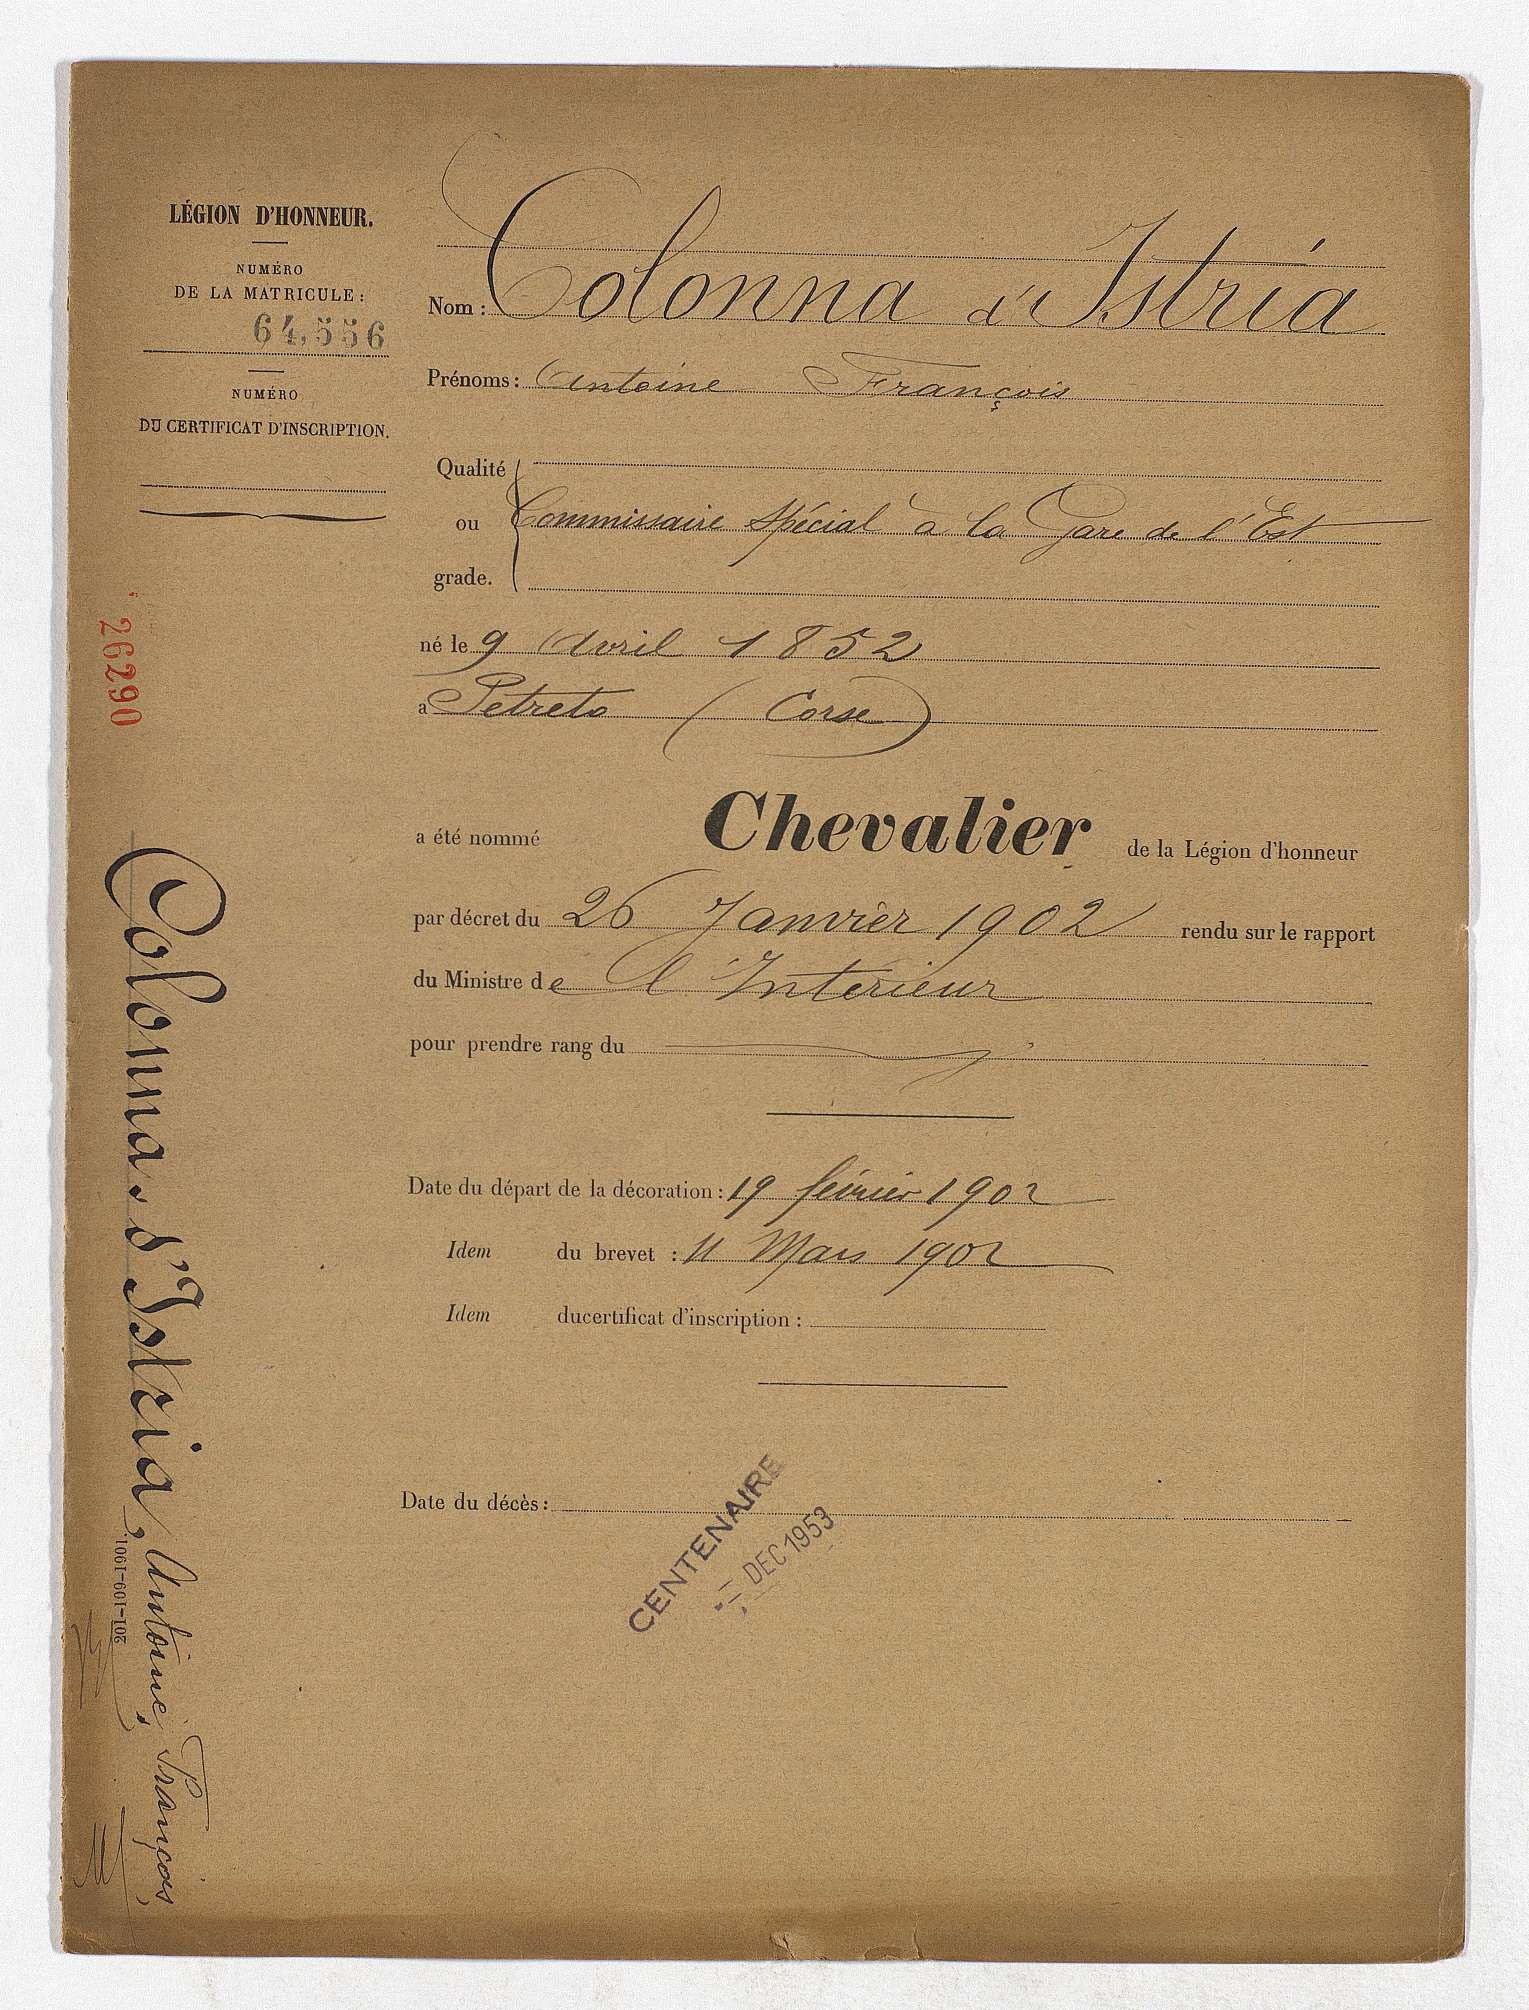 LÉGION D'HONNEUR.
NUMÉRO
DE LA MATRICULE:
64,556
NUMÉRO
DU CERTIFICAT D'INSCRIPTION.
Nom : Colonna d'Istria
Prénoms : Antoine François
Qualité
ou Commissaire Spécial à la Gare de l'Est
grade.
né le 9 Avril 1852
a Petreto (Corse)
a été nommé Chevalier de la Légion d'honneur
par décret du 26 Janvier 1902 rendu sur le rapport
du Ministre de l'Intérieur
pour prendre rang du
Date du départ de la décoration : 19 février 1902
Idem du brevet : 11 Mars 1902
Idem ducertificat d'inscription :
Date du décès :
CENTENAIRE
DEC 1953
26290
Colonna d'Istria, Antoine, François,
201-109-1901.